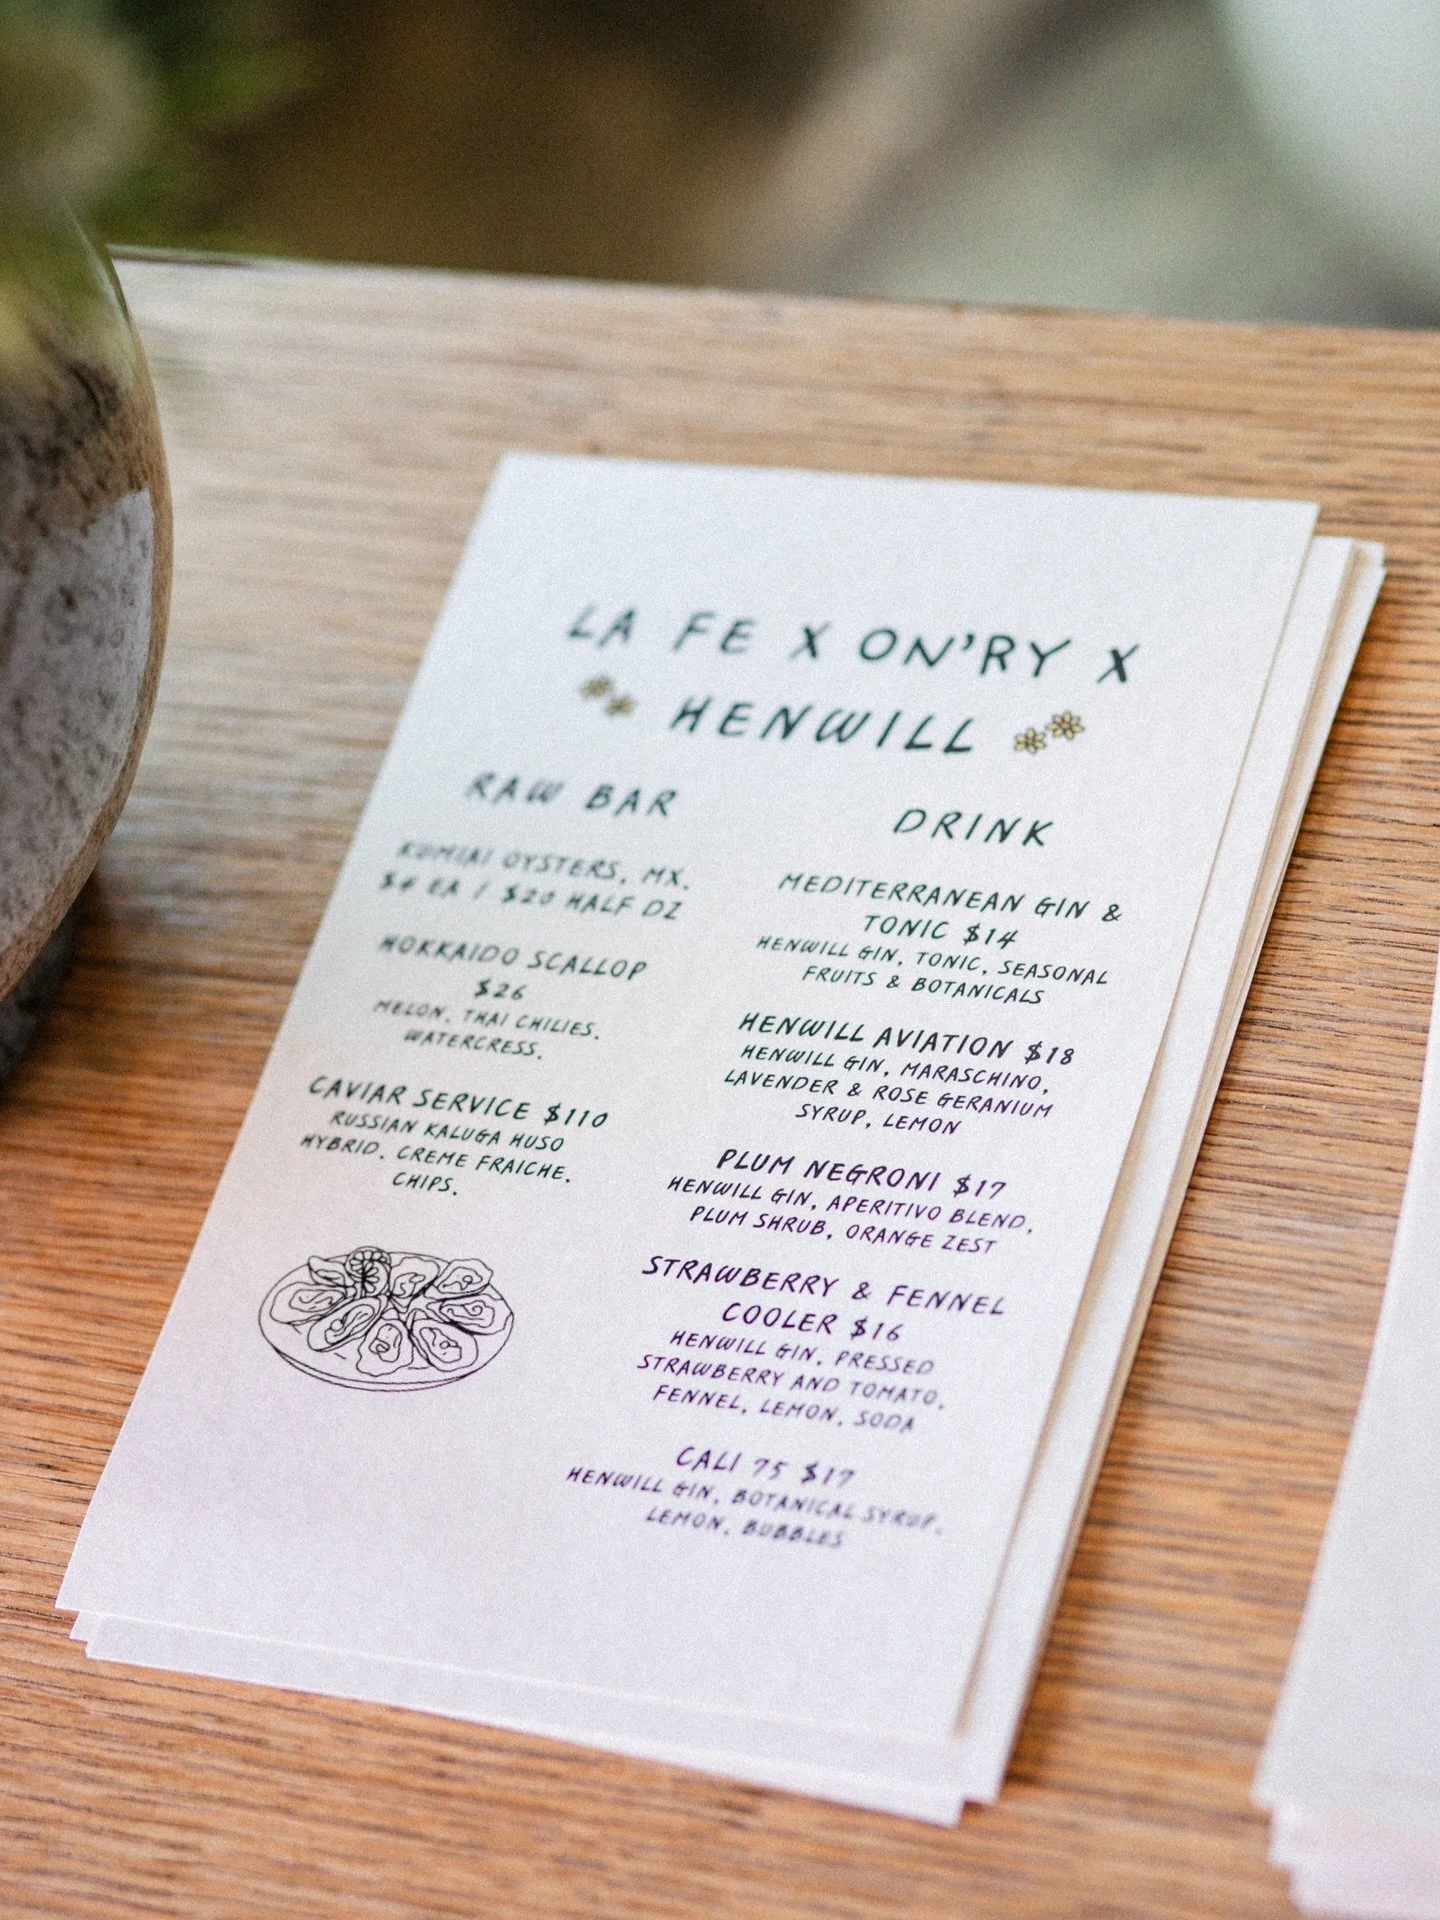 LA FE X ON'RY X
HENWILL
RAW BAR
KUMIAI OYSTERS, MX.
$4 EA / $20 HALF DZ
HOKKAIDO SCALLOP
$26
MELON, THAI CHILIES,
WATERCRESS.
CAVIAR SERVICE $110
RUSSIAN KALUGA HUSO
HYBRID, CREME FRAICHE,
CHIPS.
DRINK
MEDITERRANEAN GIN &
TONIC $14
HENWILL GIN, TONIC, SEASONAL
FRUITS & BOTANICALS
HENWILL AVIATION $18
HENWILL GIN, MARASCHINO,
LAVENDER & ROSE GERANIUM
SYRUP, LEMON
PLUM NEGRONI $17
HENWILL GIN, APERITIVO BLEND,
PLUM SHRUB, ORANGE ZEST
STRAWBERRY & FENNEL
COOLER $16
HENWILL GIN, PRESSED
STRAWBERRY AND TOMATO,
FENNEL, LEMON, SODA
CALI 75 $17
HENWILL GIN, BOTANICAL SYRUP,
LEMON, BUBBLES